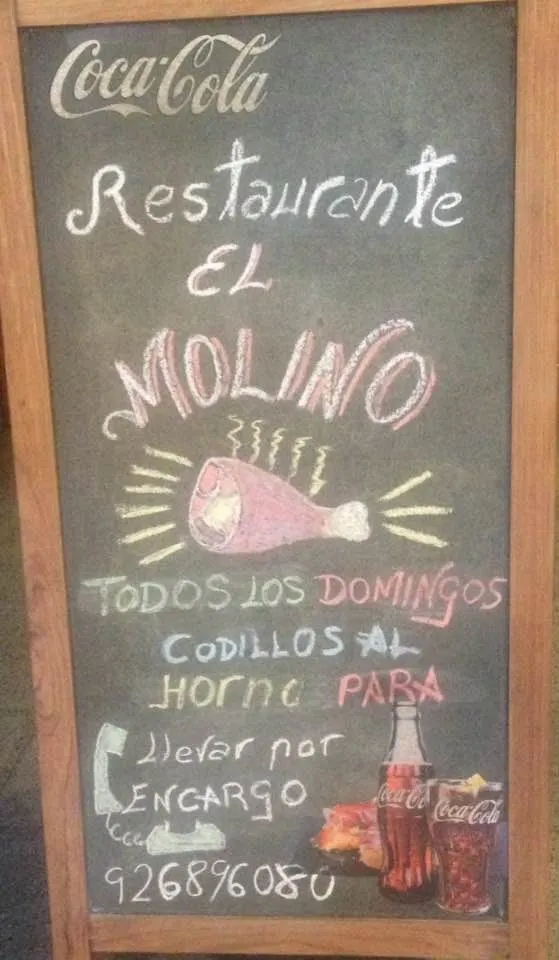 Coca-Cola
Restaurante
EL
MOLINO
TODOS LOS DOMINGOS
CODILLOS AL
HORNO PARA
Llevar por
ENCARGO
926896080
Coca-Cola
Coca-Cola